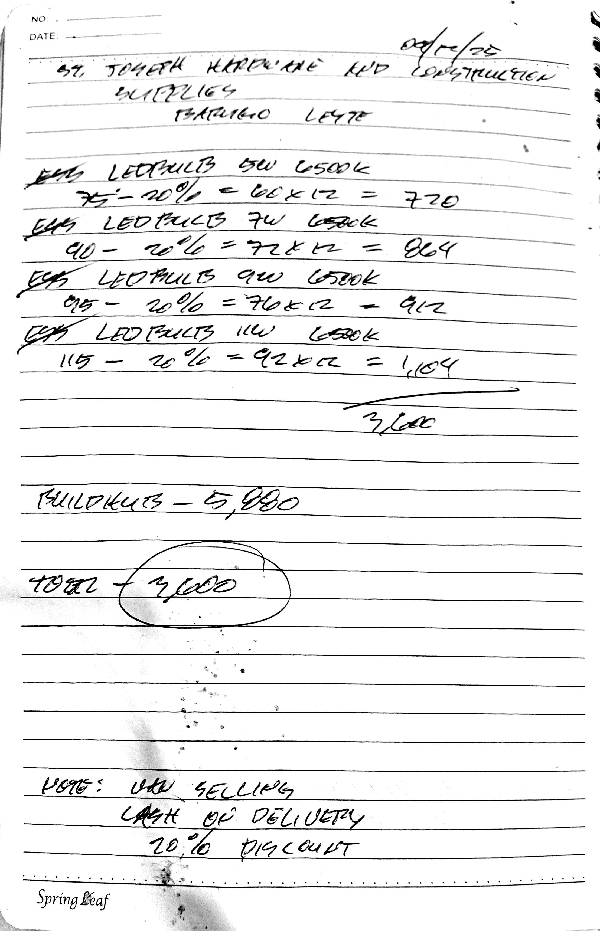 NO.
DATE:
ST. JOSEPH HARDWARE AND CONSTRUCTION
SUPPLIES
BARUGO LEYTE
LEDBULB 5W 6500K
75 - 20% = 60 x 12 = 720
LEDBULB 7W 6500K
90 - 20% = 72 x 12 = 864
LEDBULB 9W 6500K
95 - 20% = 76 x 12 = 912
LEDBULB 11W 6500K
115 - 20% = 92 x 12 = 1,104
3,600
BUILDHUB - 5,880
TOTAL - 3,600
NOTE: VAN SELLING
CASH ON DELIVERY
20% DISCOUNT
Spring Leaf